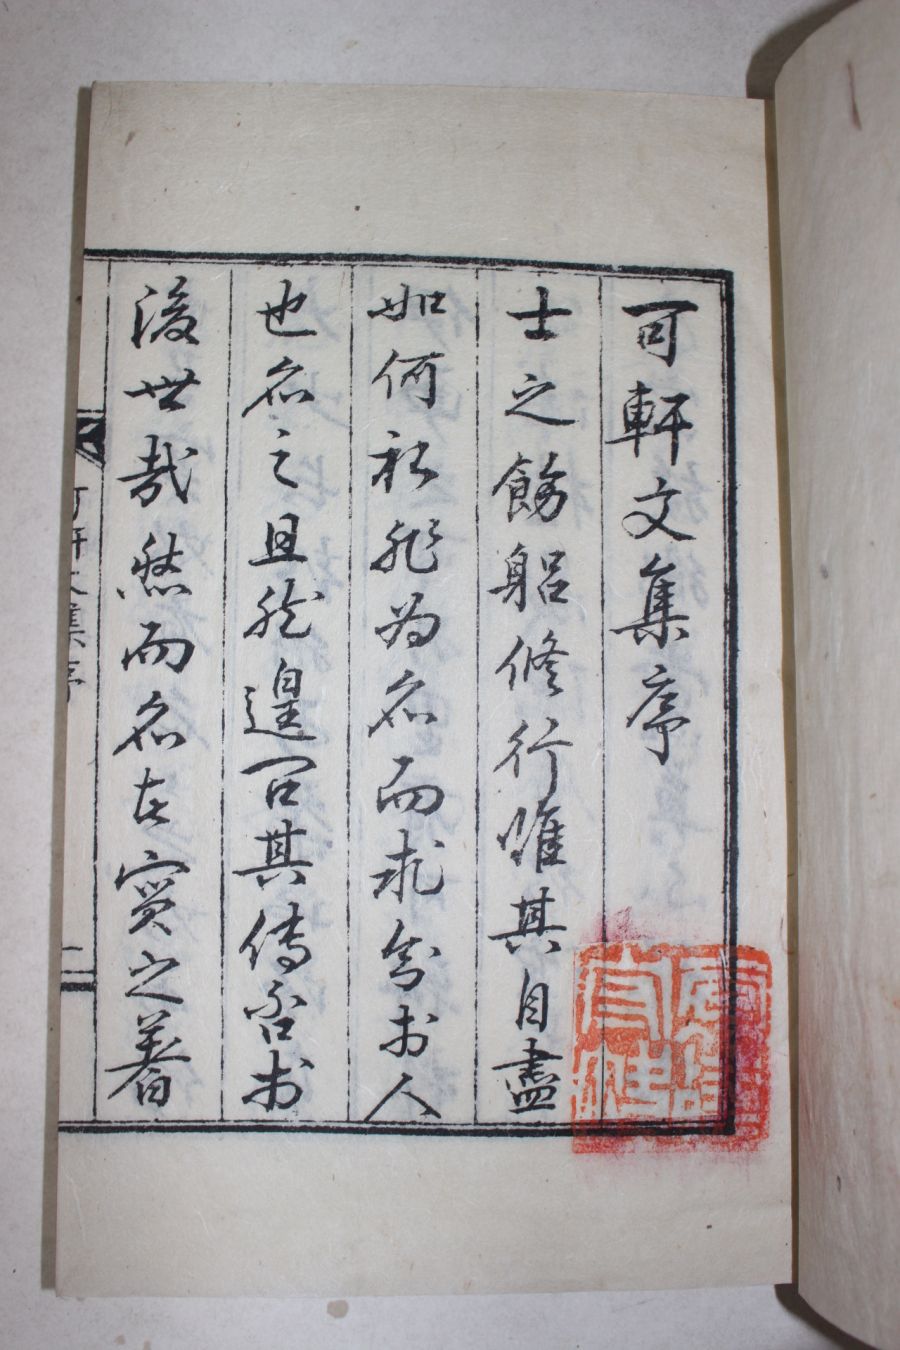 可軒文集序
士之飭躳修行唯其自盡
如何初非为名而求於人
也名之且然遑問其傳否於
後世哉然而名者實之著
可軒文集序
一